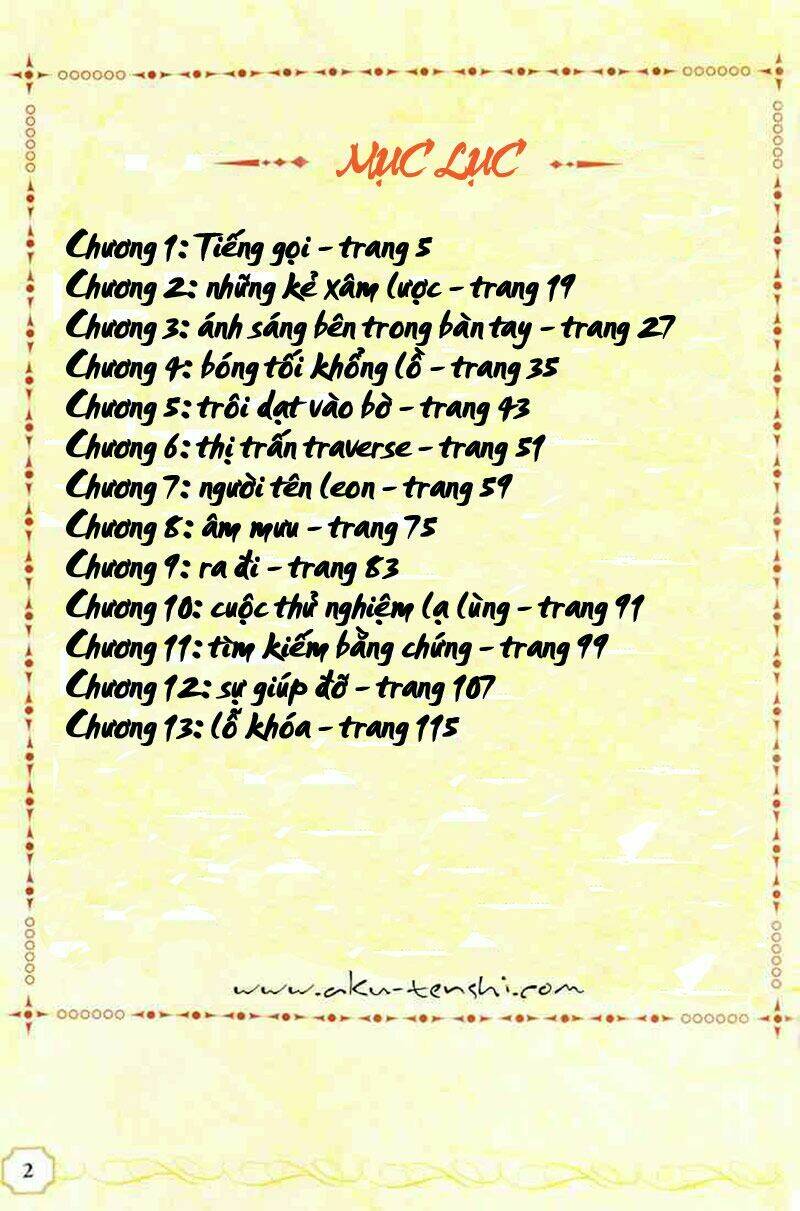 MỤC LỤC
Chương 1: Tiếng gọi - trang 5
Chương 2: những kẻ xâm lược - trang 19
Chương 3: ánh sáng bên trong bàn tay - trang 27
Chương 4: bóng tối khổng lồ - trang 35
Chương 5: trôi dạt vào bờ - trang 43
Chương 6: thị trấn traverse - trang 51
Chương 7: người tên leon - trang 59
Chương 8: âm mưu - trang 75
Chương 9: ra đi - trang 83
Chương 10: cuộc thử nghiệm lạ lùng - trang 91
Chương 11: tìm kiếm bằng chứng - trang 99
Chương 12: sự giúp đỡ - trang 107
Chương 13: lỗ khóa - trang 115
www.aku-tenshi.com
2